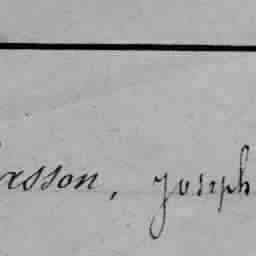 rsson, Joseph